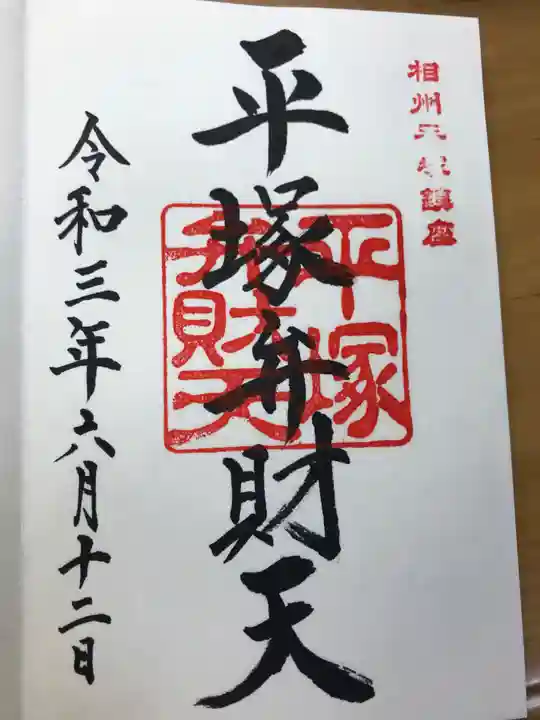 相州天災鎮座
平塚弁財天
平塚
弁財天
令和三年六月十二日